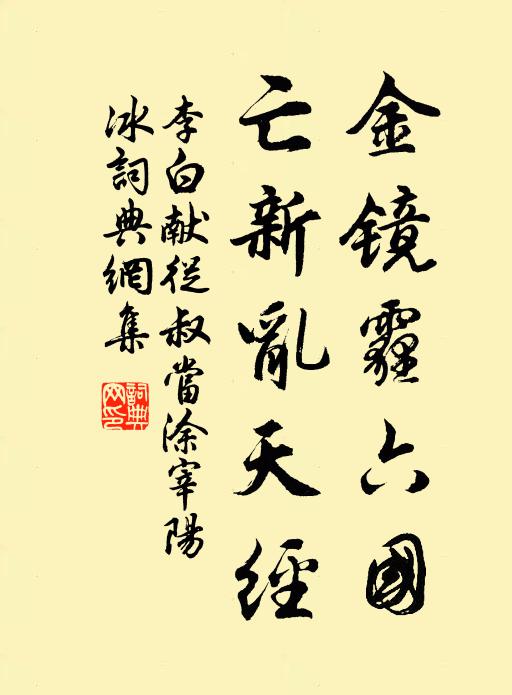 金镜霾六國
亡新亂天經
李白献從叔當涂宰陽
冰詞典網集
詞典網印